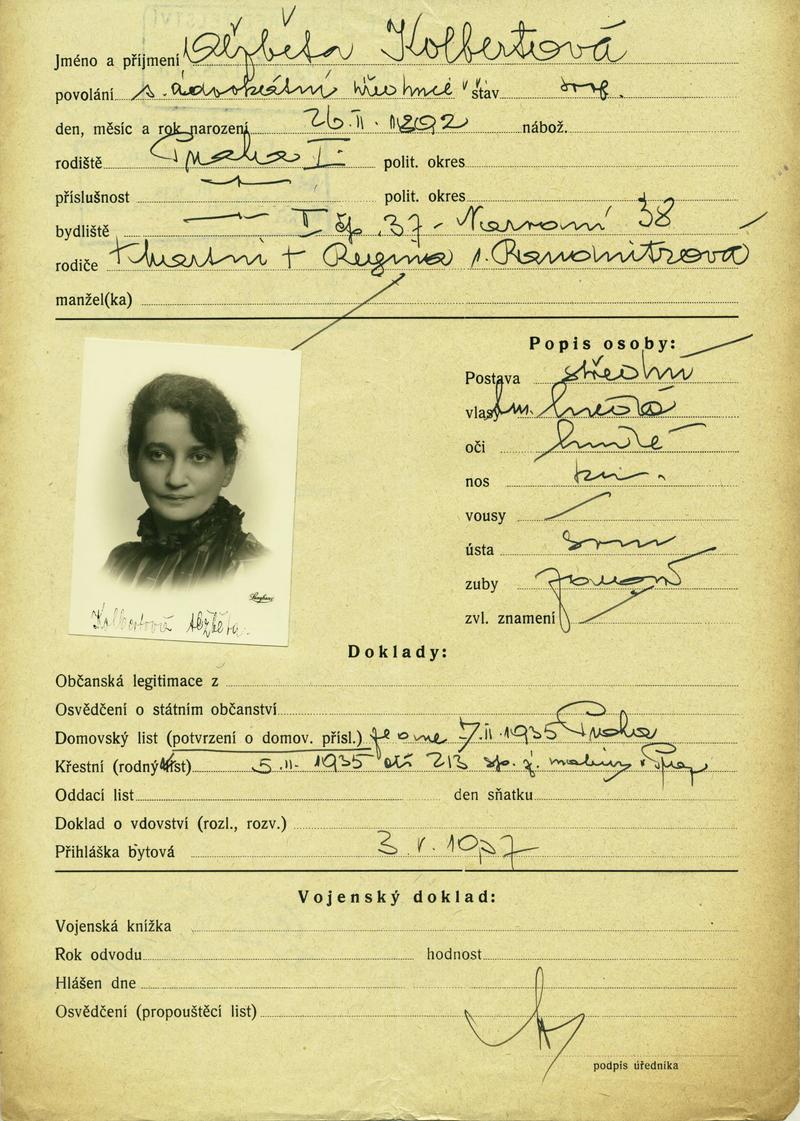 Jméno a příjmení Alžběta Kolbertová
povolání s. advokátní úřednice stav svob.
den, měsíc a rok narození 26.II. 1892 nábož.
rodiště Praha I. polit. okres
příslušnost polit. okres
bydliště I čp. 37 - Národní 38
rodiče + Martin + Regina r.
manžel(ka)
Popis osoby:
Postava střední
vlasy tm. hnědá
oči hnědé
nos
vousy
ústa
zuby
zvl. znamení
Kolbertová Alžběta.
Doklady:
Občanská legitimace z
Osvědčení o státním občanství
Domovský list (potvrzení o domov. přísl.) ze dne 7.II.1935 Praha
Křestní (rodný list) 5.II. 1935 čís 213 sp. ž. matriky v Praze
Oddací list den sňatku
Doklad o vdovství (rozl., rozv.)
Přihláška bytová 3. V. 1937
Vojenský doklad:
Vojenská knížka
Rok odvodu hodnost
Hlášen dne
Osvědčení (propouštěcí list)
podpis úředníka